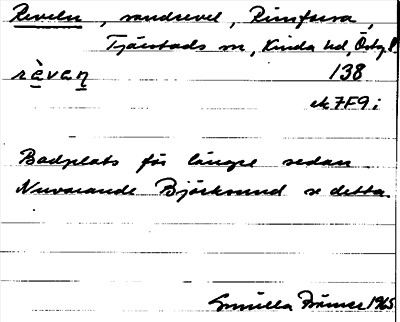 Reveln, sandrevel, Rimforsa,
Tjärstads sn, Kinda hd, Östgl.
rèvan 138
ek 7F9i
Badplats för längre sedan
Nuvarande Björksund se detta
Gunilla 1965